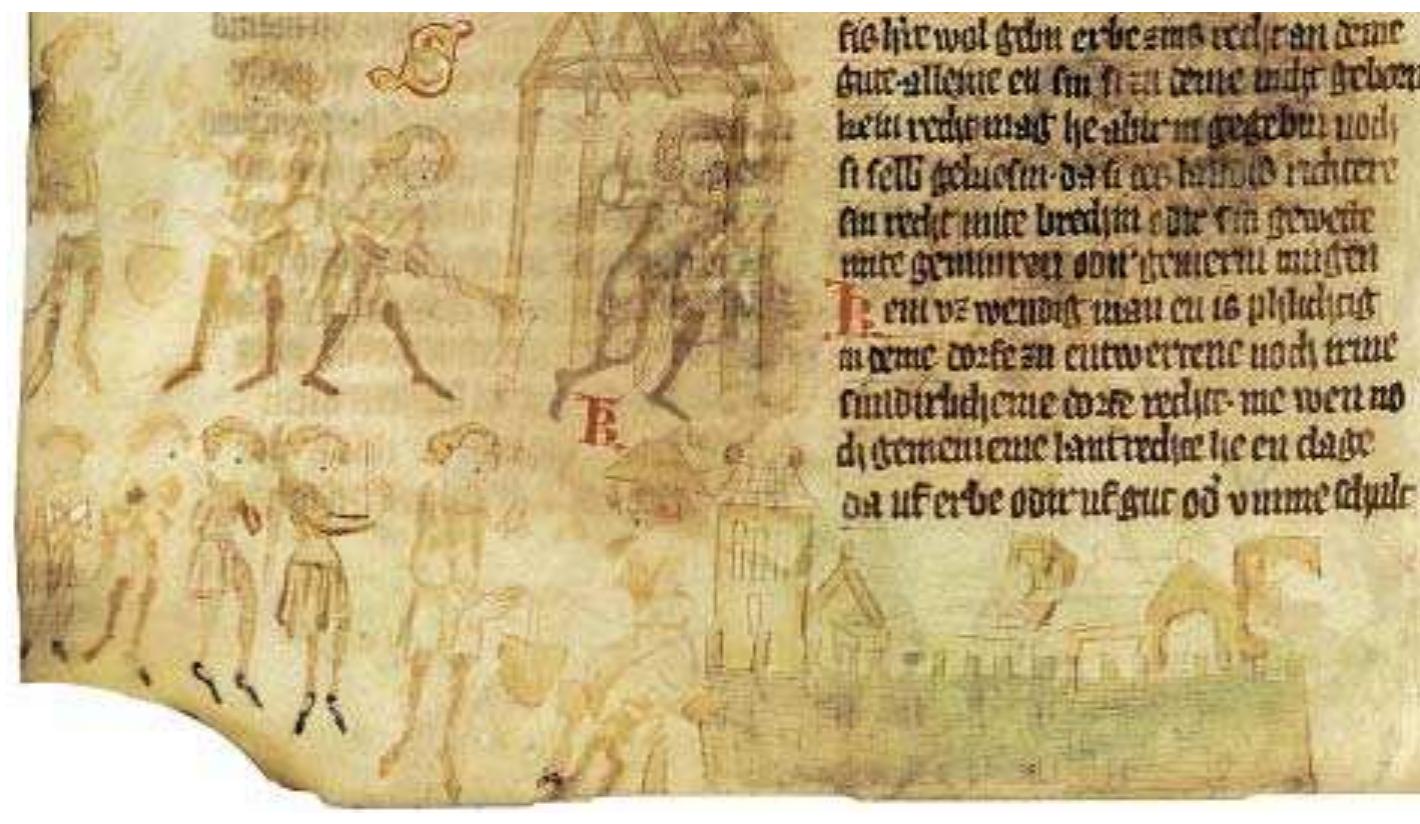 S
sis h're wol gebin erbe zins recht an deme
gute·alleine en sin si zu deme nicht geborn
kein recht mag he abir in gegebin noch
si selb gekiesin·da si des landis richtere
sin recht mite brechin odir sin gewette
mite geminren odir gemerin mugen
K ein vz wendig man en is phlichtig
in deme dorfe zu entwertene noch irme
sundirlicheme dorf rechte· me wen no
ch gemeineme lantrechte he en clage
da uf erbe odir uf gut od' vmme schult
K